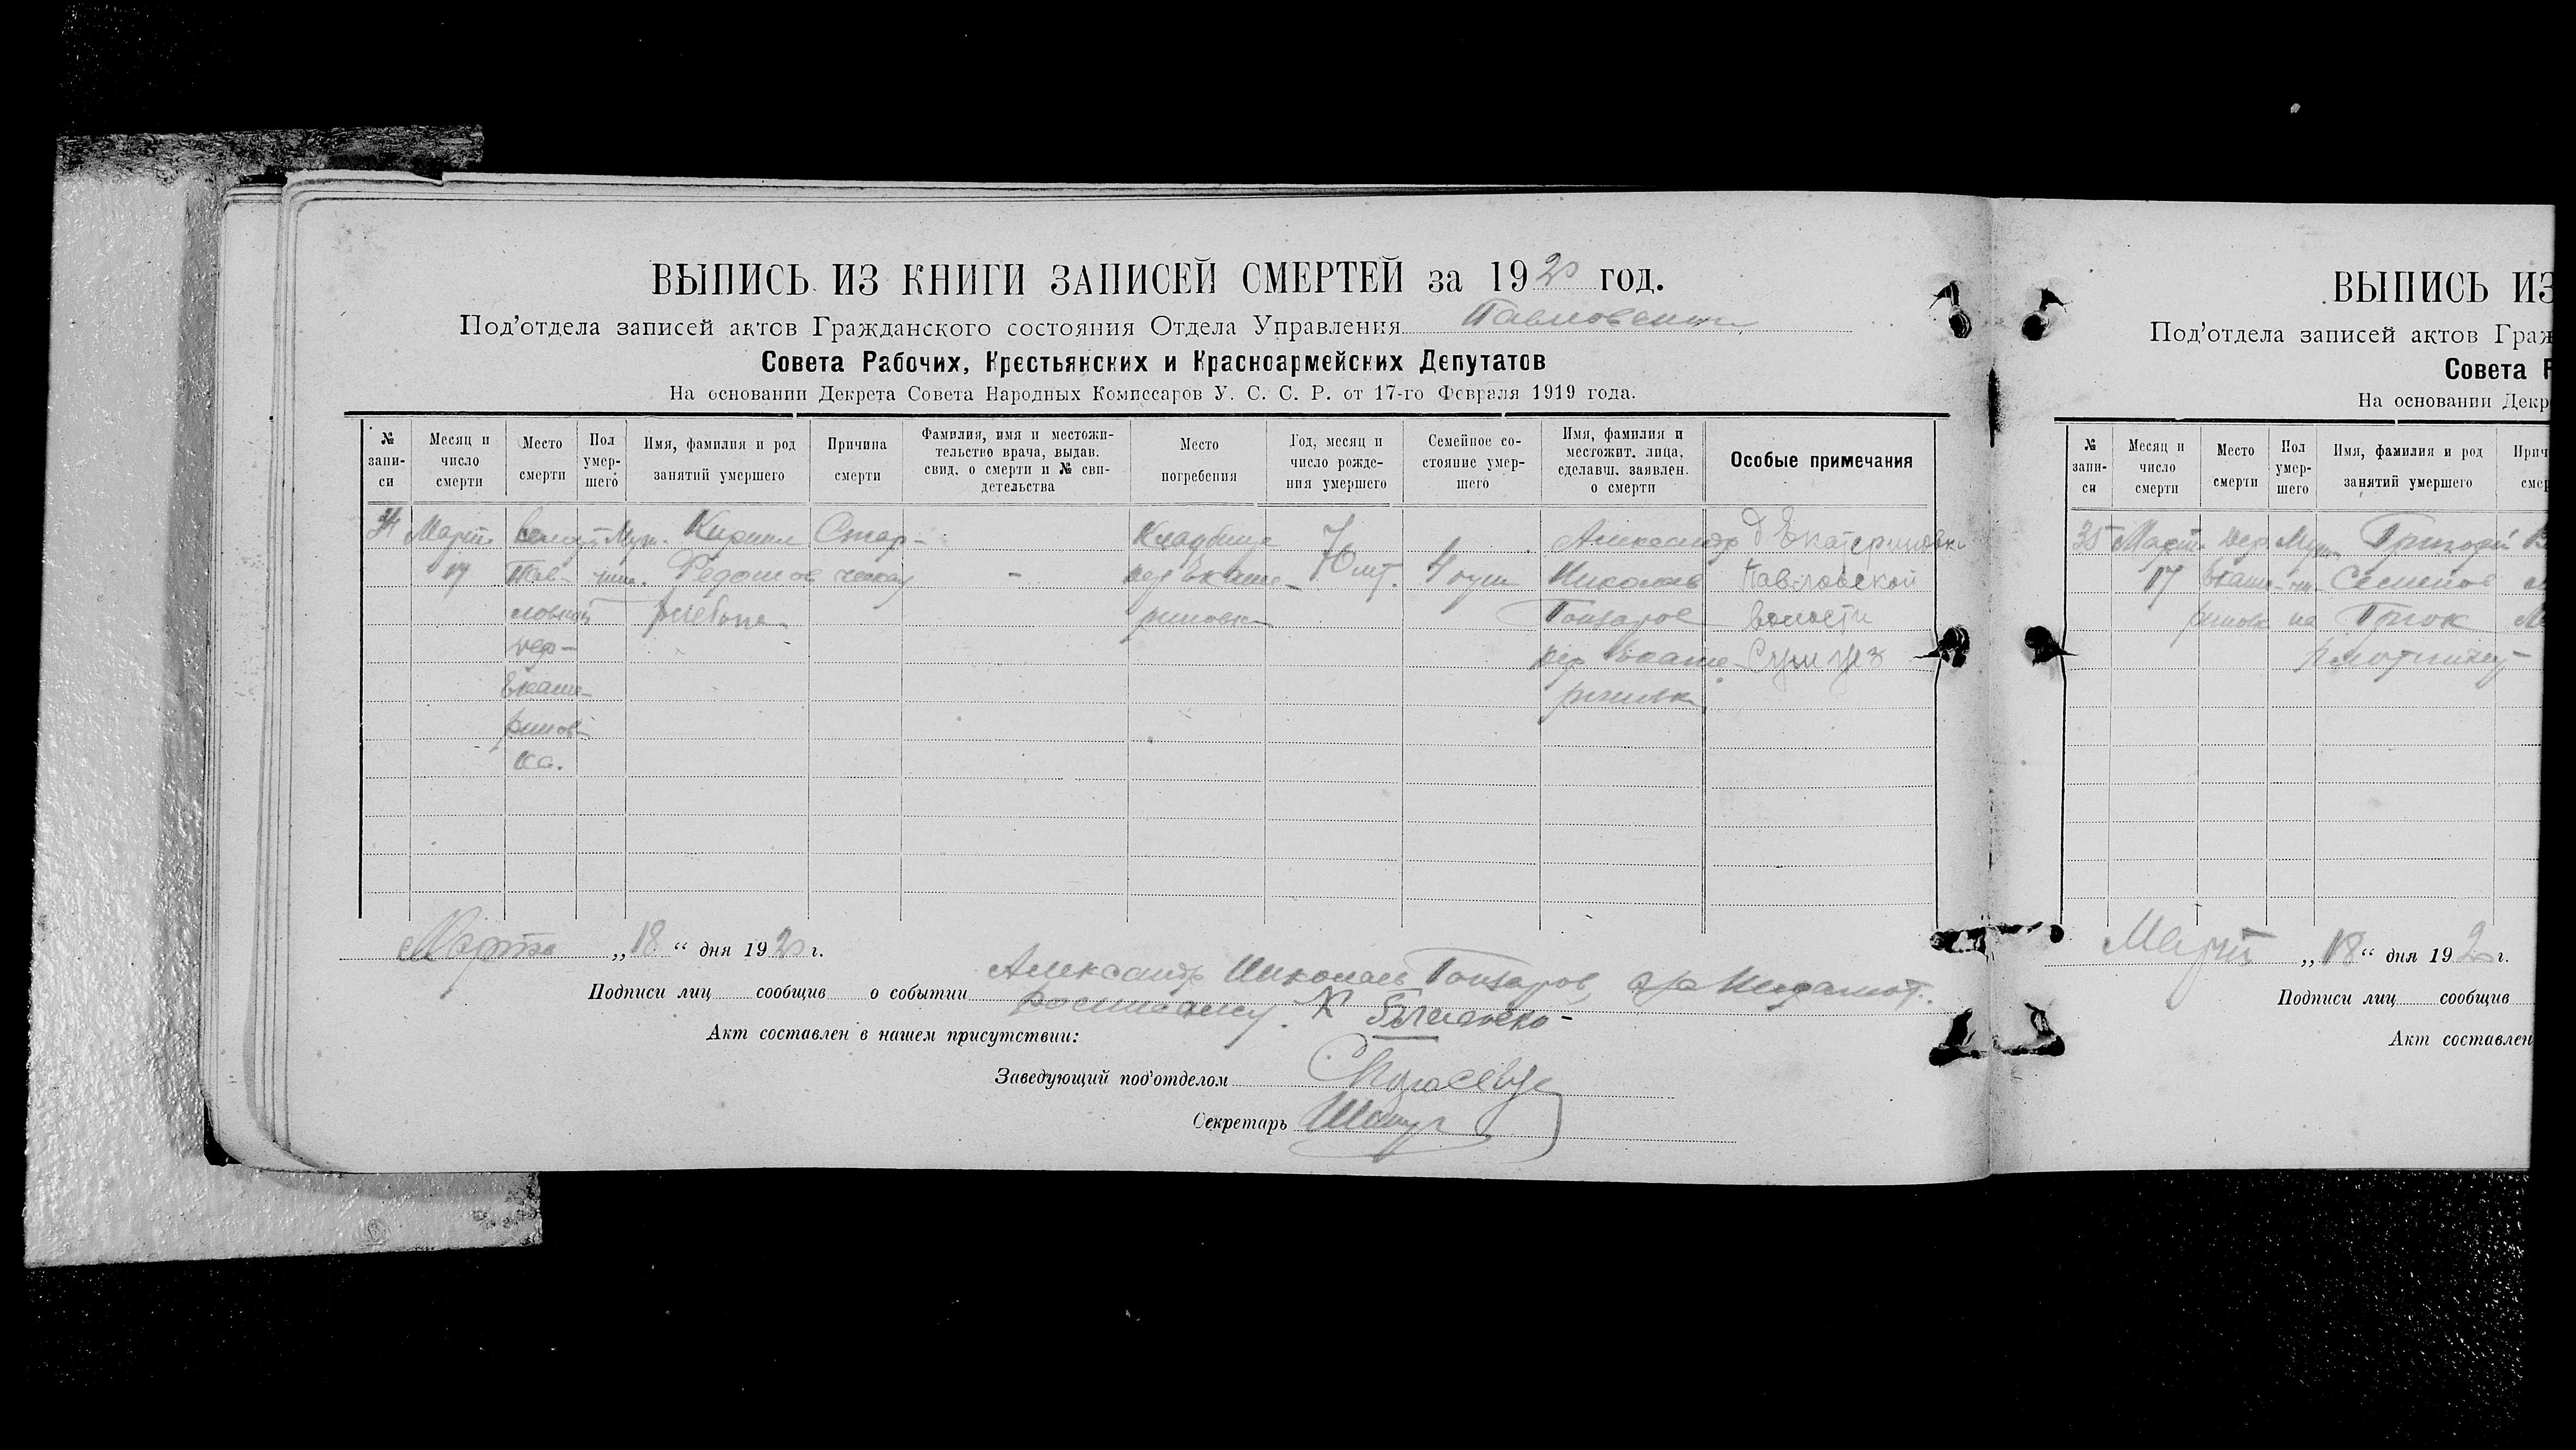 ВЫПИСЬ ИЗ КНИГИ ЗАПИСЕЙ СМЕРТЕЙ за 1920 год.
Под'отдела записей актов Гражданского состояния Отдела Управления
Совета Рабочих, Крестьянских и Красноармейских Депутатов
На основании Декрета Совета Народных Комиссаров У. С. С. Р. от 17-го Февраля 1919 года.
№ запи-си
Месяц и число смерти
Место смерти
Пол умер-шего
Имя, фамилия и род занятий умершего
Причина смерти
Фамилия, имя и местожи-тельство врача, выдав. свид. о смерти и № сви-детельства
Место погребения
Год, месяц и число рожде-ния умершего
Семейное со-стояние умер-шего
Имя, фамилия и местожит. лица, сделавш. заявлен. о смерти
Особые примечания
34
Марта
17
Пав-
ловской
дер-
Екате-
ринов-
ка.
Муж-
Кирилл
Федотов
Стар-
ческая
-
Кладбище
дер Екате-
риновки
70 лет.
4 душ
Александр
Николаев
Гончаров
дер Екате-
риновки
д Екатериновки
Павловской
волости
Марта „18“ дня 1920 г.
Подписи лиц сообщив о событии Александр Николаев Гончаров, а за Неграмот.
Акт составлен в нашем присутствии:
Заведующий под'отделом
Секретарь
ВЫПИСЬ ИЗ
Под'отдела записей актов Граж
Совета Р
На основании Декр
№ запи-си
Месяц и число смерти
Место смерти
Пол умер-шего
Имя, фамилия и род занятий умершего
Прич
смер
35
Март
17
Дер
Екате-
ринов
Григорий
Семенов
Март „18“ дня 1920 г.
Подписи лиц сообщив
Акт составлен